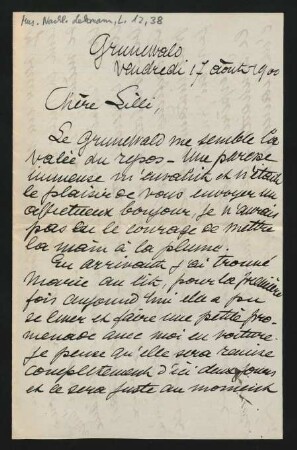 Mus. Nachl. Lehmann, L. 12, 38
Grunewald
Vendredi 17 août 1900
Chère Lilli,
Le Grunewald me semble la
valée du repos – Une paresse
immense m'envahit et n'était
le plaisir de vous envoyer un
affectueux bonjour, je n'aurais
pas eu le courage de mettre
la main à la plume.
En arrivant j'ai trouvé
Marie au lit, pour la première
fois aujourd'hui elle a pu
se lever et faire une petite pro-
menade avec moi en voiture.
Je pense qu'elle sera remise
complètement d'ici deux jours
et ce sera juste au moment